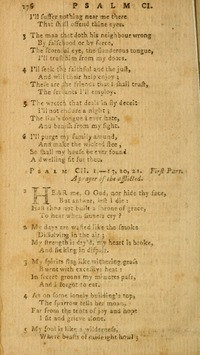 276 PSALM CI.
I'll suffer nothing near me there
That shall offend thine eyes.
3 The man that doth his neighbour wrong
By falsehood or by force,
The scornful eye, the slanderous tongue,
I'll thrust them from my doors.
4 I'll seek the faithful and the just,
And will their help enjoy;
These are the friends that I shall trust,
The servants I'll employ.
5 The wretch that deals in sly deceit
I'll not endure a night;
The liar's tongue I ever hate,
And banish from my sight.
6 I'll purge my family around,
And make the wicked flee,
So shall my house be ever found
A dwelling fit for thee.
PSALM CII. 1—13, 20, 21. First Part.
A prayer of the afflicted.
HEAR me, O God, nor hide thy face,
But answer, lest I die:
Hast thou not built a throne of grace,
To hear when sinners cry?
2 My days are wasted like the smoke
Dissolving in the air;
My strength is dry'd, my heart is broke,
And sinking in despair.
3 My spirits flag like withering grass
Burnt with excessive heat:
In secret groans my minutes pass,
And I forget to eat.
4 As on some lonely building's top,
The sparrow tells her moan,
Far from the tents of joy and hope
I sit and grieve alone.
5 My soul is like a wilderness,
Where beasts of midnight howl;